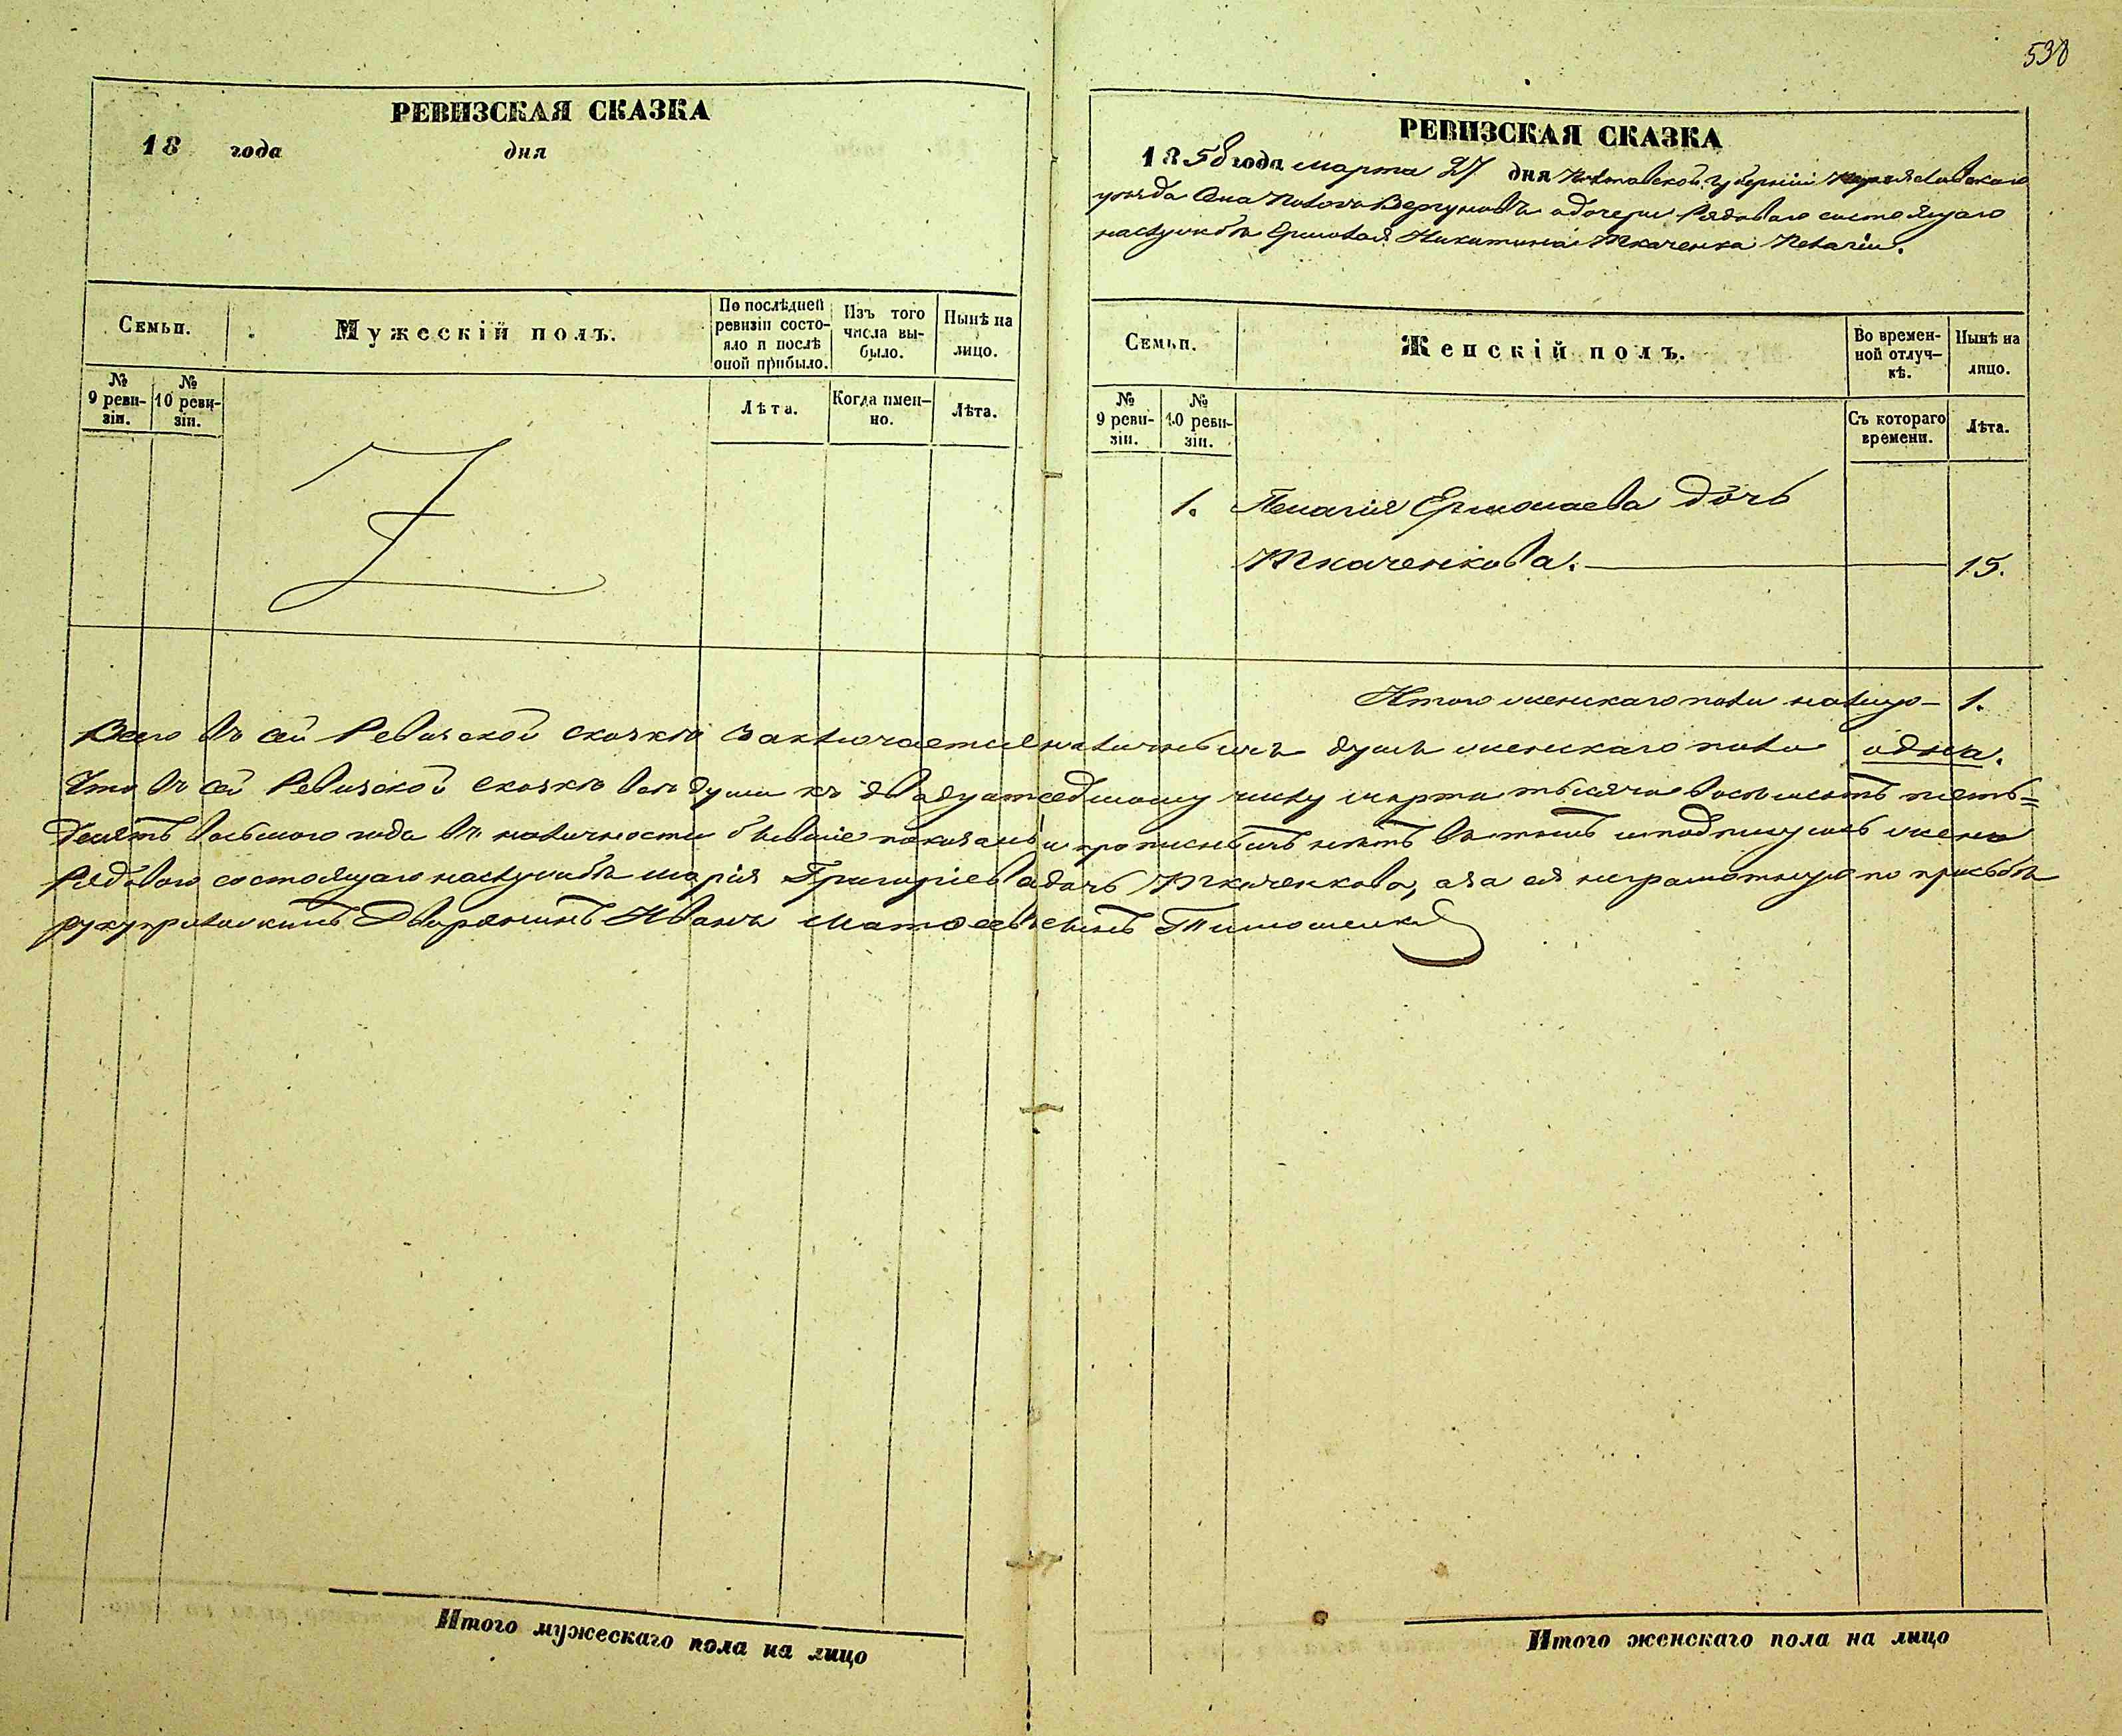 538
РЕВИЗСКАЯ СКАЗКА
18 года дня
Семьи.
Мужескій полъ.
По послѣдней ревизіи состояло и послѣ оной прибыло.
Изъ того числа выбыло.
Нынѣ на лицо.
№ 9 ревизіи.
№ 10 ревизіи.
Лѣта.
Когда именно.
Лѣта.
РЕВИЗСКАЯ СКАЗКА
1858 года марта 27 дня Полтавской губерніи Переяславскаго
уѣзда Села Полого Вергуновъ о дочери Рядоваго состоящаго
наслужбѣ Ермолая Никитина Ткаченка Пелагіи.
Семьи.
Женскій полъ.
Во временной отлучкѣ.
Нынѣ на лицо.
№ 9 ревизіи.
№ 10 ревизіи.
Съ котораго времени.
Лѣта.
1. Пелагія Ермолаева дочь
Ткаченкова. 15.
Итого женскаго пола налицо 1.
Всего въ сей Ревизской сказкѣ заключается наличныхъ душъ женскаго пола одна.
Что въ сей Ревизской сказкѣ всѣ души къ двадцатседмому числу марта тысяча восемсотъ пять=
десятъ восьмого года въ наличности бывшіе показаны и прописныхъ нѣтъ въ томъ и подписуюсь жена
Рядоваго состоящаго наслужбѣ Марія Григоріева дочь Ткаченкова, а за ея неграмотную по прозьбѣ
руку приложилъ Дворянинъ Иванъ Матвѣевъ сынъ Тимошенко
Итого мужескаго пола на лицо
Итого женскаго пола на лицо